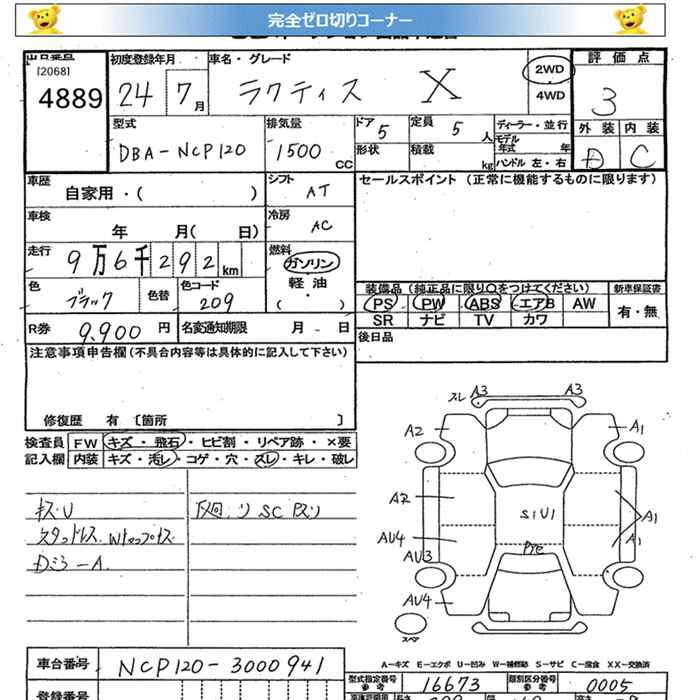 完全ゼロ切りコーナー
出品番号 初度登録年月 車名・グレード 評価点
[2068]
4889 24 7月 ラクティス X 2WD 4WD 3
外装 内装
D C
型式 排気量 ドア 5 定員 5人 ディーラー・並行
DBA-NCP120 1500CC 形状 積載 kg モデル年式 年
ハンドル 左・右
車歴 自家用・( ) シフト AT セールスポイント (正常に機能するものに限ります)
車検 年 月( 日) 冷房 AC
走行 9万6千292km 燃料 ガソリン 軽油 ( )
色 ブラック 色替 色コード 209
装備品 (純正品に限り○をつけてください) 新車保証書
PS PW ABS エアB AW 有・無
SR ナビ TV カワ
R券 9,900円 名変通知期限 月 日
後日品
注意事項申告欄(不具合内容等は具体的に記入して下さい)
修復歴 有 〔箇所 〕
検査員 FW キズ・飛石・ヒビ割・リペア跡・×要
記入欄 内装 キズ・汚レ・コゲ・穴・スレ・キレ・破レ
キズ・U
スタッドレス
Dミラ-A
スレ A3 A3
A2 A1
A2 A1
AU4 S1U1 A1
AU3
AU4
スペア
A-キズ E-エクボ U-凹み W-補修跡 S-サビ C-腐食 XX-交換済
車台番号 NCP120-3000941
型式指定番号 参考 16673 類別区分番号 参考 0005
登録番号